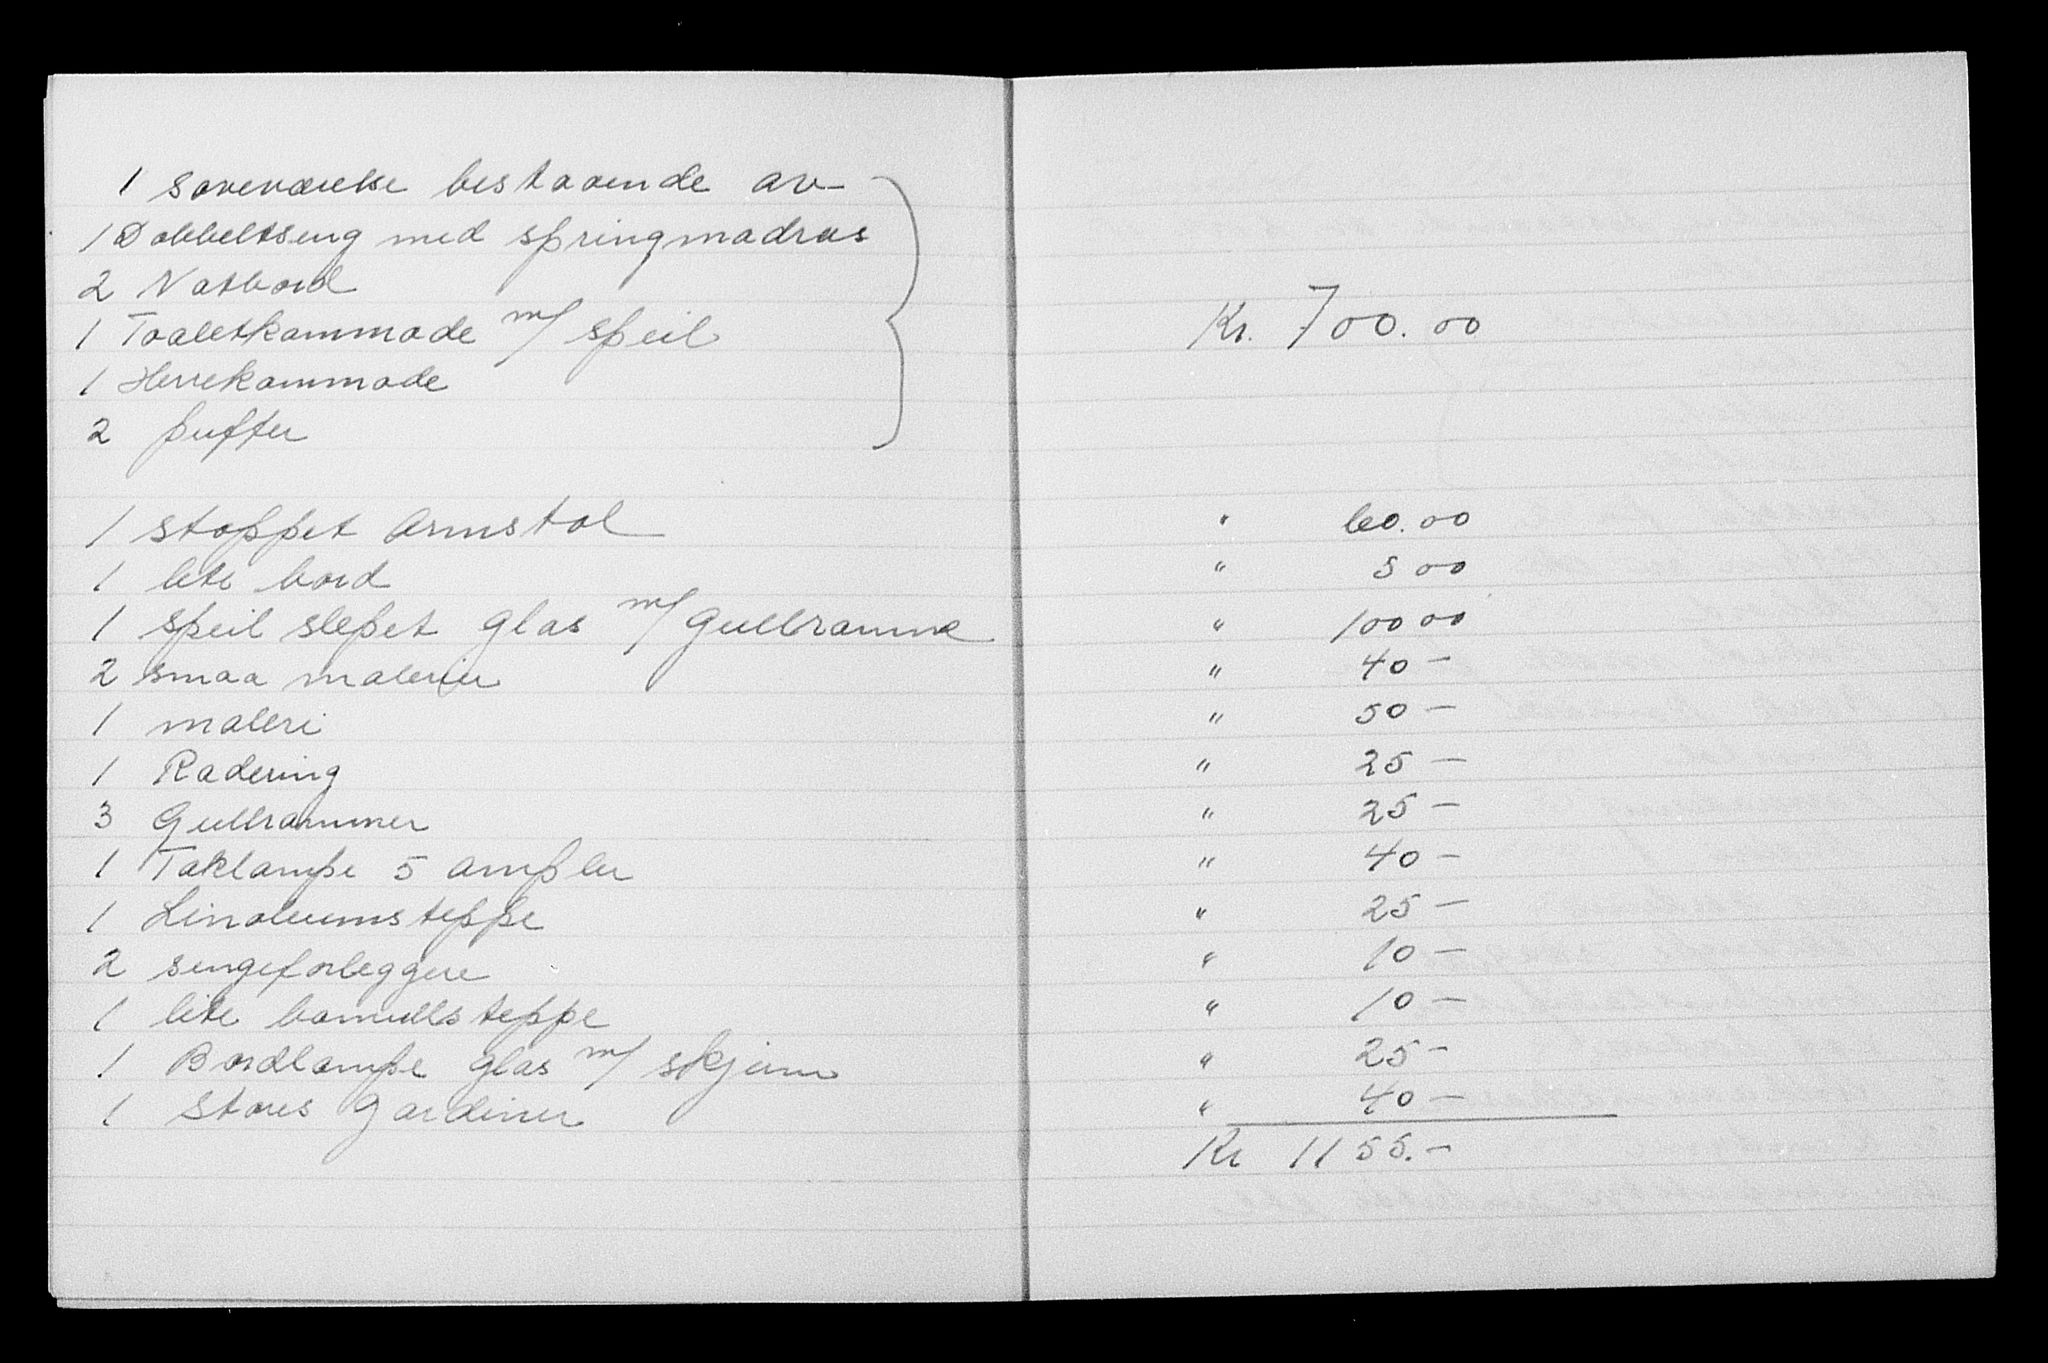 1 soveværelse bestaaende av
1 Dobbeltseng med springmadras
2 Natbord
1 Toaletkommode m/ speil Kr. 700.00
1 Herrekommode
2 puffer
1 stoppet Armstol " 60.00
1 lite bord " 5 00
1 speil slepet glas m/ Gullramme " 100 00
2 smaa malerier " 40 –
1 maleri " 50 –
1 Radering " 25 –
3 Gullrammer " 25 –
1 Taklampe 5 ampler " 40 –
1 Linoleumsteppe " 25 –
2 sengeforleggere " 10 –
1 lite bomullsteppe " 10 –
1 Bordlampe glas m/ skjerm " 25 –
1 Stores Gardiner " 40 –
Kr 1155.–